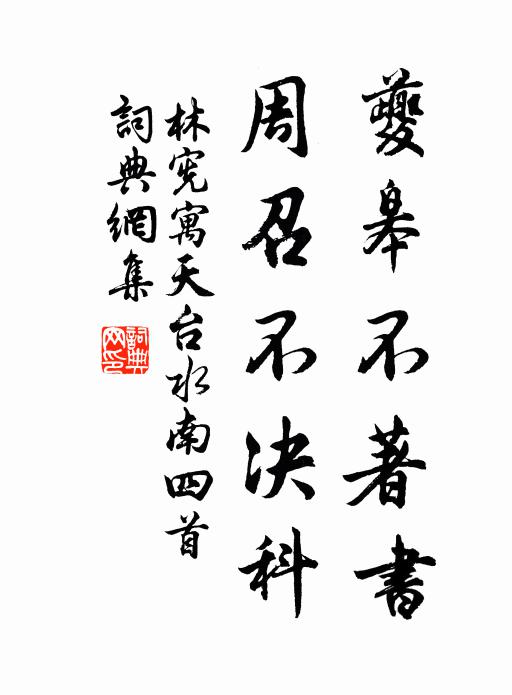 夔皋不著書
周召不決科
林宪寓天台水南四首
詞典網集
詞典网印